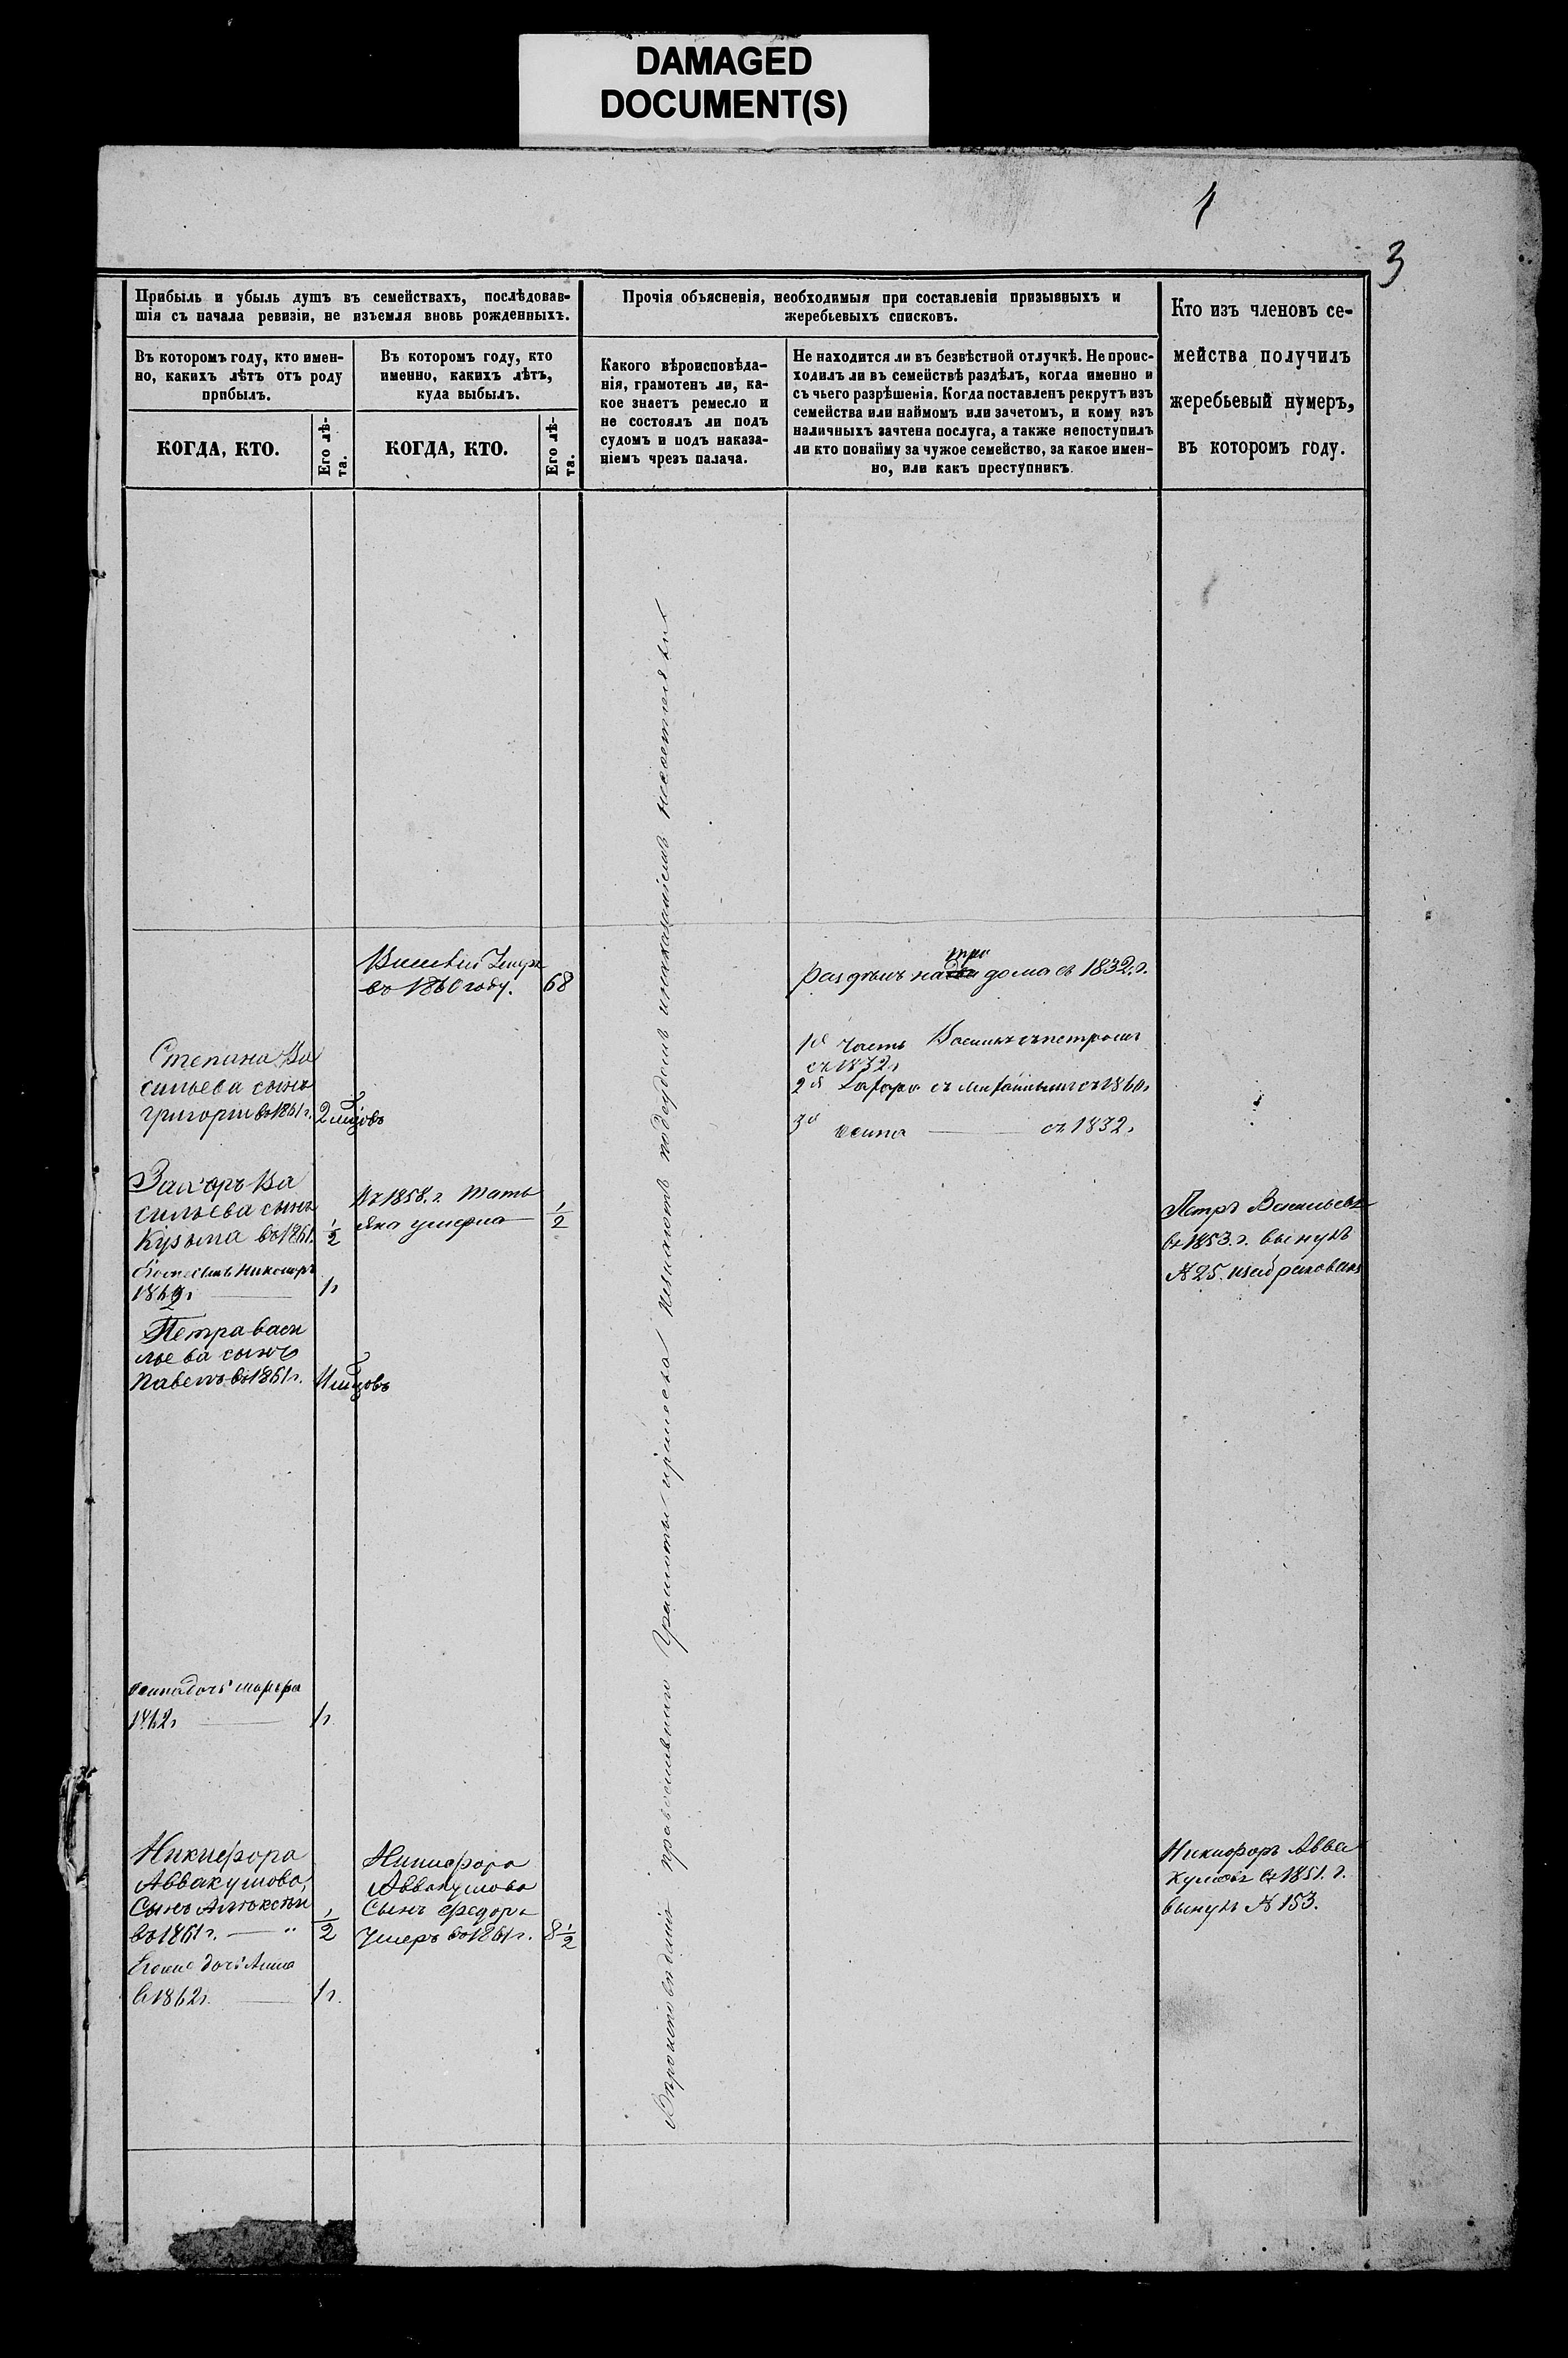 DAMAGED
DOCUMENT(S)
4
3
Прибыль и убыль душъ въ семействахъ, послѣдовав-
шія съ начала ревизіи, не изъемля вновь рожденныхъ.
Въ которомъ году, кто имен-
но, какихъ лѣтъ отъ роду
прибылъ.
КОГДА, КТО.
Его лѣ-
та.
Въ которомъ году, кто
именно, какихъ лѣтъ,
куда выбылъ.
КОГДА, КТО.
Его лѣ-
та.
Прочія объясненія, необходимыя при составленіи призывныхъ и
жеребьевыхъ списковъ.
Какого вѣроисповѣда-
нія, грамотенъ ли, ка-
кое знаетъ ремесло и
не состоялъ ли подъ
судомъ и подъ наказа-
ніемъ чрезъ палача.
Не находится ли въ безвѣстной отлучкѣ. Не проис-
ходилъ ли въ семействѣ раздѣлъ, когда именно и
съ чьего разрѣшенія. Когда поставленъ рекрутъ изъ
семейства или наймомъ или зачетомъ, и кому изъ
наличныхъ зачтена послуга, а также непоступилъ
ли кто понайму за чужое семейство, за какое имен-
но, или какъ преступникъ.
Кто изъ членовъ се-
мейства получилъ
жеребьевый нумеръ,
въ которомъ году.
Умеръ
въ 1860 году. 68
раздѣлъ на три дома съ 1832. г.
Степана Ва
сильева сынъ
григорій въ 1861 г. 2
1я часть Василья съ петромъ
съ 1832 г
2я съ 1860 г
3я осипа — съ 1832.
Захаръ Ва
сильева сынъ
Кузьма въ 1861. 1/2
Въ 1858. г. Тать
яна умерла — 1/2
Никоноръ
1862 г — 1 г
Петра Васи
льева сынъ
Павелъ въ 1861 г.
Петръ Васильевъ
въ 1853. г. вынулъ
№ 25.
осипа дочь
1862 г — 1 г
Никифора
Аввакумова,
Сынъ Алексѣй
въ 1861 г. — " 1/2
Никифора
Аввакумова
Сынъ Федоръ
Умеръ въ 1861 г. 8 1/2
дочь Анна
въ 1862 г. — 1 г.
Никифоръ Авва
кумовъ въ 1851. г.
вынулъ № 153.
Вѣроисповѣданія православнаго Грамоты и ремесла незнаютъ подсудомъ и наказаніемъ несостояли